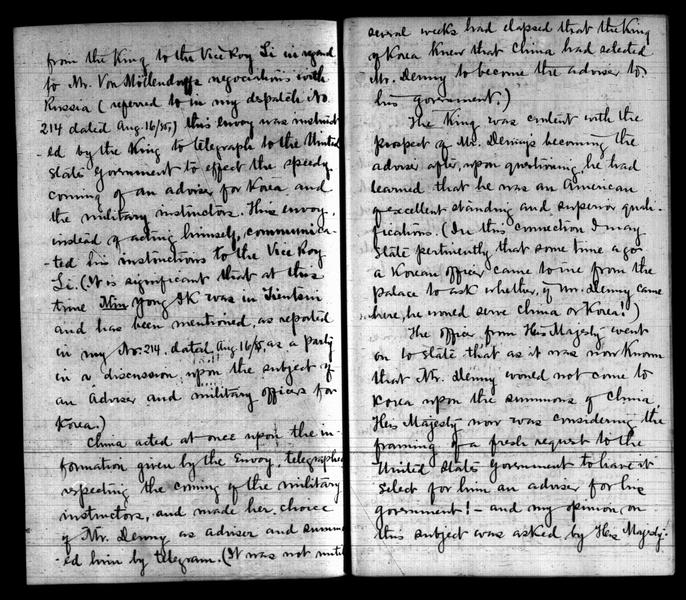 from the King to the Vice Roy Li in regard
to Mr. Von Möllendorff's negociations with
Russia (referred to in my despatch No.
214 dated Aug. 16/85,) this envoy was instruct
-ed by the King to telegraph to the United
State Government to effect the speedy
coming of an adviser for Korea and
the military instructors. This envoy,
instead of acting himself, communica-
-ted his instructions to the Vice Roy
Li. (It is significant that at this
time Min Yong Ik was in Tientsin
and has been mentioned, as reported
in my No: 214. dated Aug 16/85, as a party
in a discussion upon the subject of
an adviser and military officers for
Korea.)
China acted at once upon the in-
formation given by the Envoy, telegraphed
respecting the coming of the military
instructors, and made her choice
of Mr. Denny as adviser and summ
-ed him by telegram. (It was not until
several weeks had elapsed that the King
of Korea knew that China had selected
Mr. Denny to become the adviser to
his government.)
The King was content with the
prospect of Mr. Denny's becoming the
adviser after, upon questioning, he had
learned that he was an American
of excellent standing and superior quali-
fications. (In this connection I may
state pertinently that some time ago
a Korean officer came to me from the
palace to ask whether, if Mr. Denny came
here, he would serve China or Korea!)
The officer from His Majesty went
on to state that as it was now known
that Mr. Denny would not come to
Korea upon the summons of China,
His Majesty now was considering the
framing of a fresh request to the
United States Government to have it
select for him an adviser for his
government! – and my opinion on
this subject was asked by His Majesty.